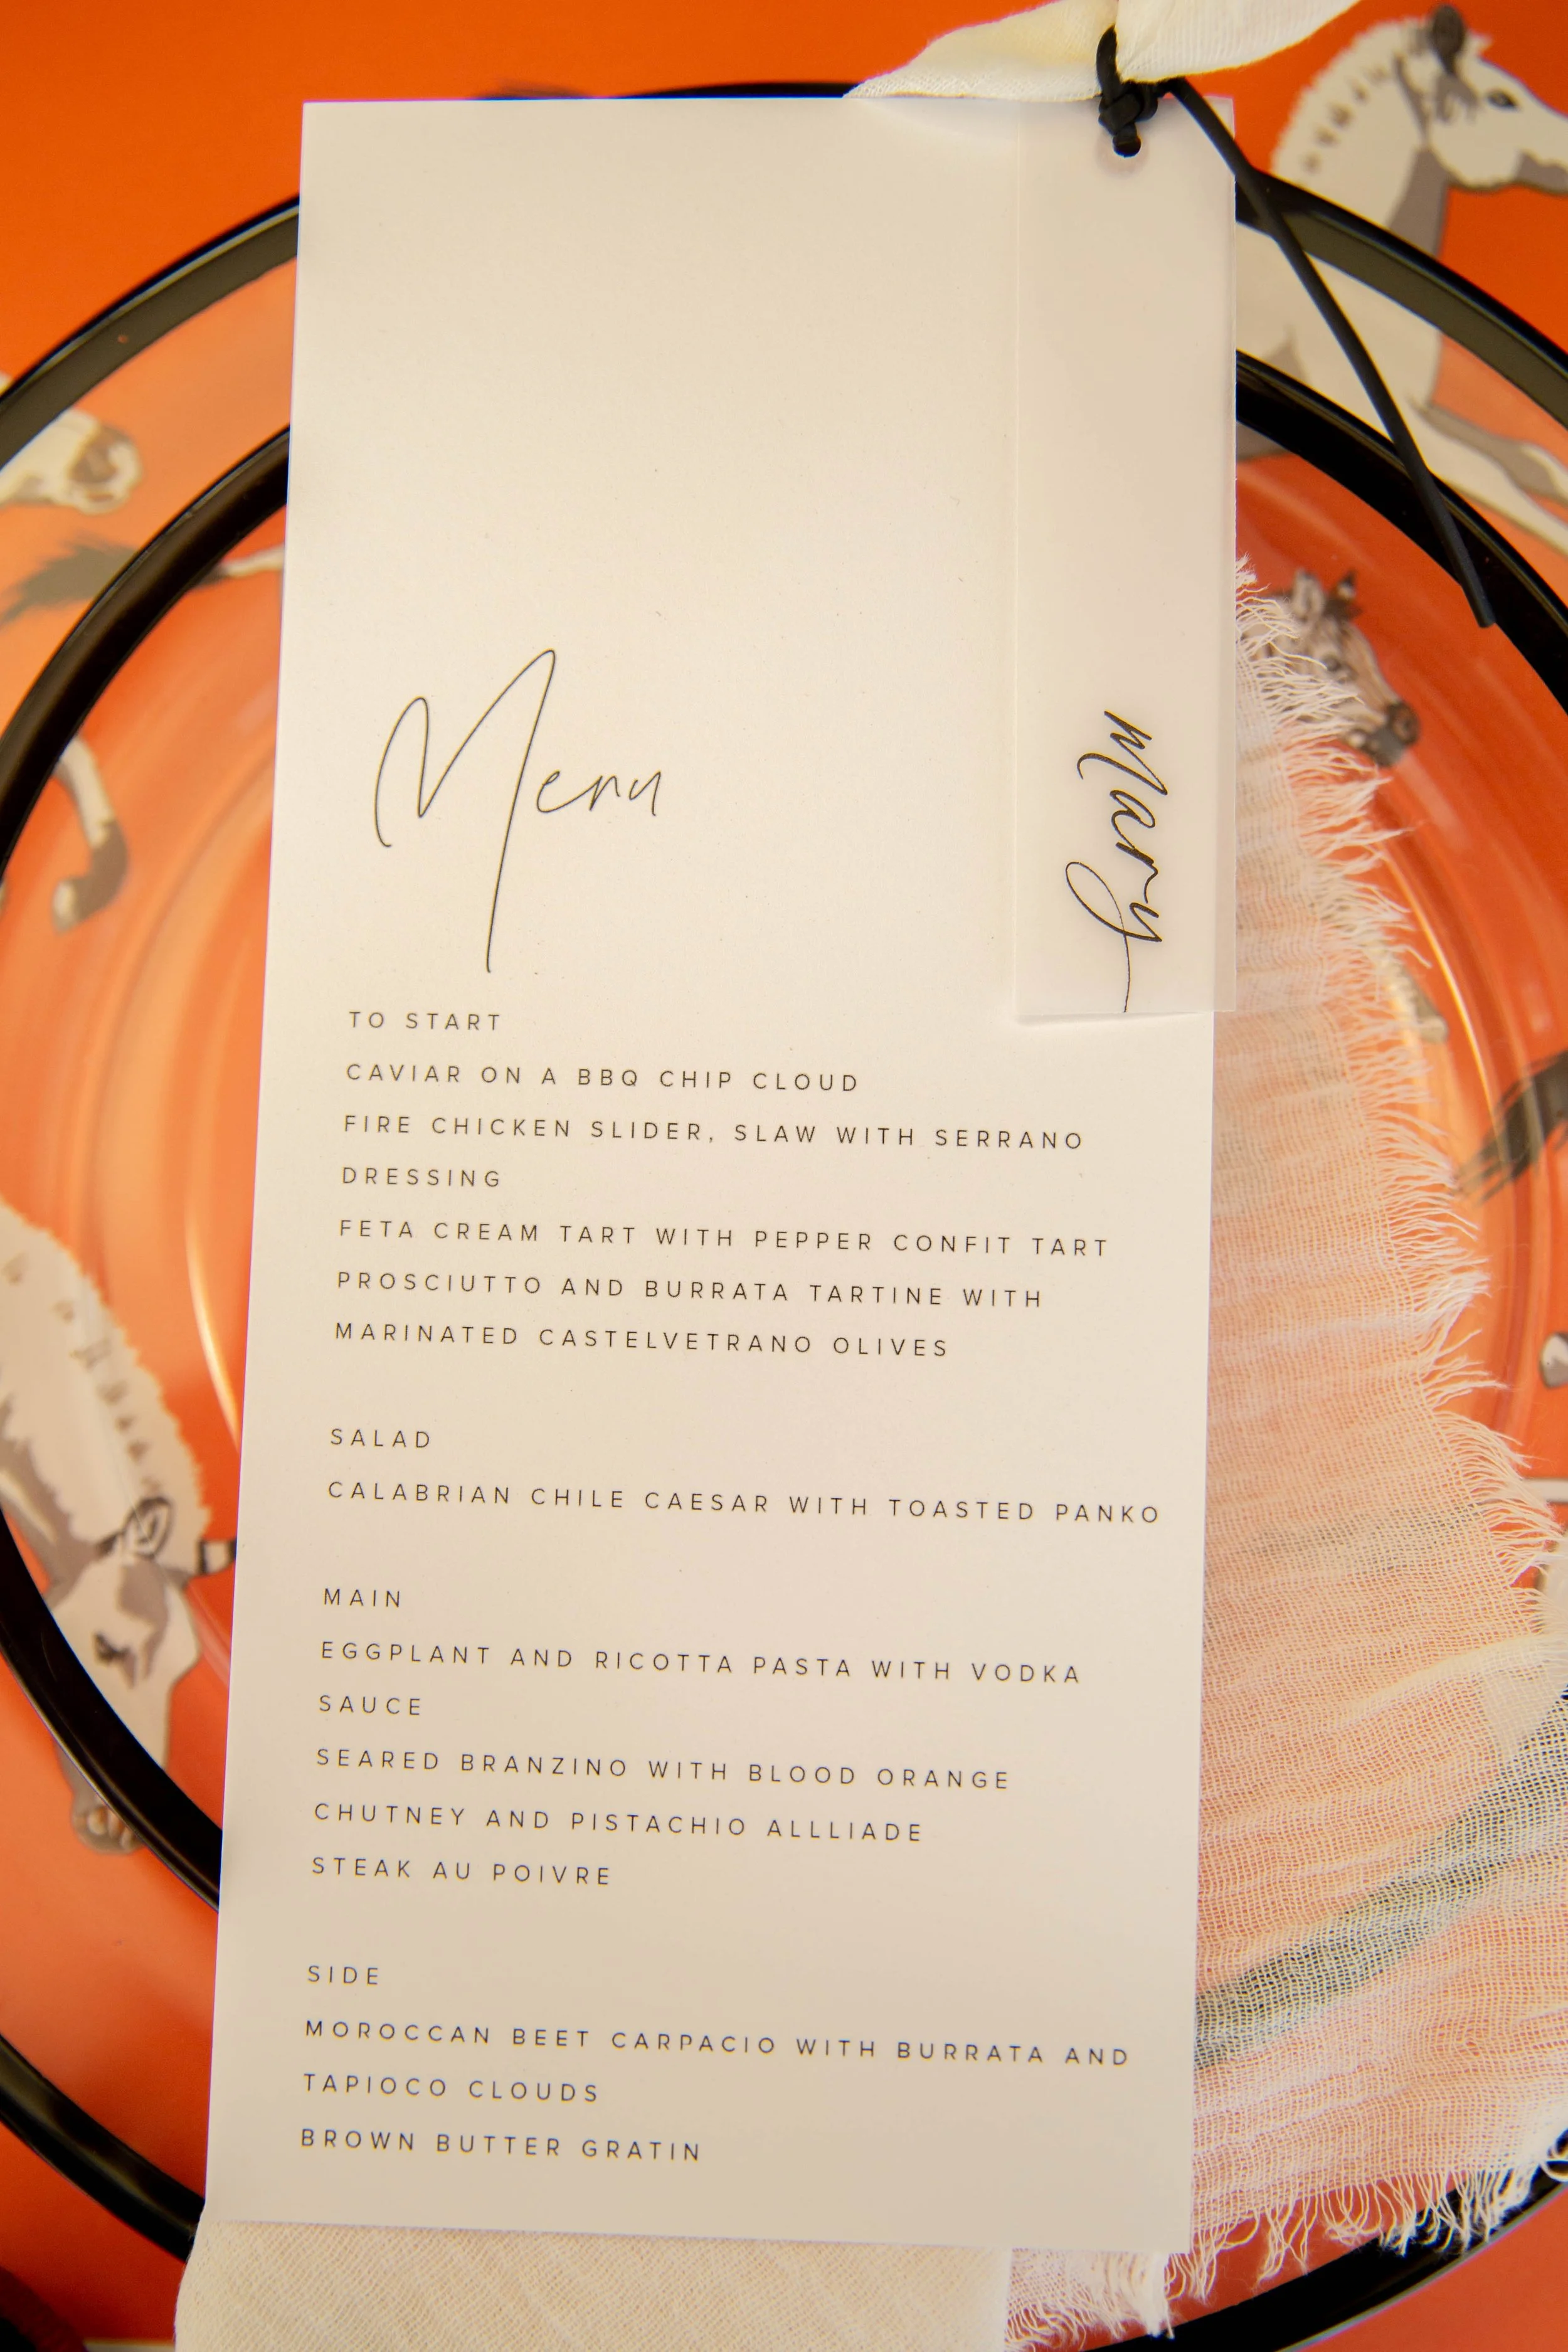 Menu
Mary
TO START
CAVIAR ON A BBQ CHIP CLOUD
FIRE CHICKEN SLIDER, SLAW WITH SERRANO
DRESSING
FETA CREAM TART WITH PEPPER CONFIT TART
PROSCIUTTO AND BURRATA TARTINE WITH
MARINATED CASTELVETRANO OLIVES
SALAD
CALABRIAN CHILE CAESAR WITH TOASTED PANKO
MAIN
EGGPLANT AND RICOTTA PASTA WITH VODKA
SAUCE
SEARED BRANZINO WITH BLOOD ORANGE
CHUTNEY AND PISTACHIO ALLLIADE
STEAK AU POIVRE
SIDE
MOROCCAN BEET CARPACIO WITH BURRATA AND
TAPIOCO CLOUDS
BROWN BUTTER GRATIN